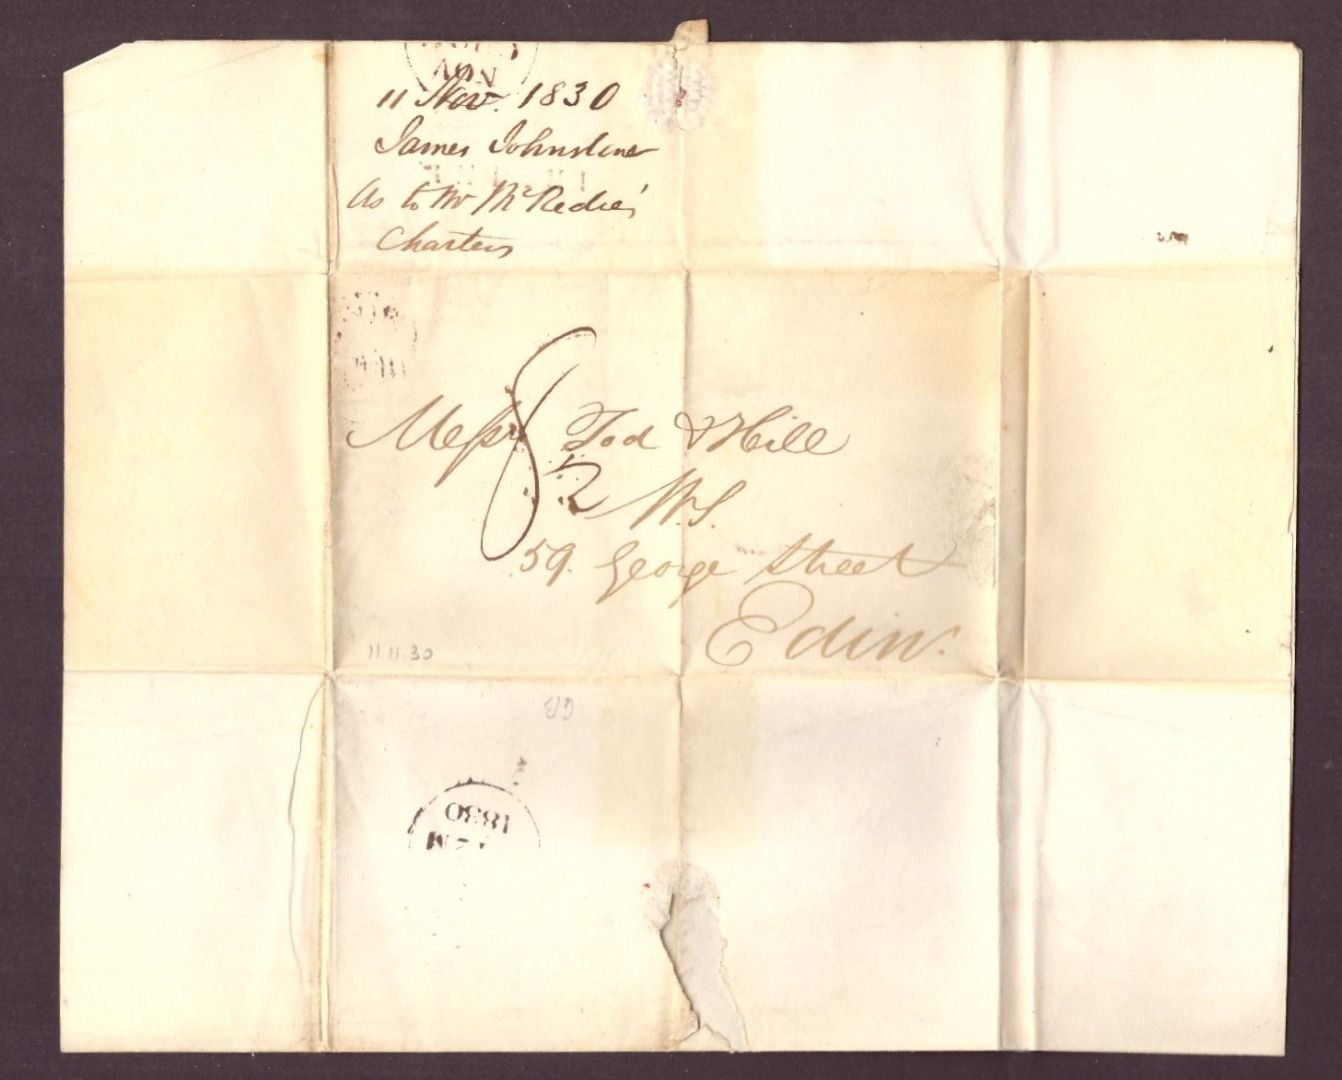 NOV
11 Nov. 1830
James Johnstone
As to Mr McRedie's
Charters
Messrs Tod & Hill
8
2
W.S.
59. George Street
Edinr.
11 11 30
1830